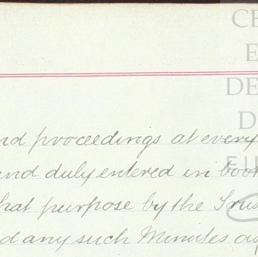 CE
E
DE
D
nd proceedings at every
and duly entered in boo
hat purpose by the Trus
d any such Minutes as